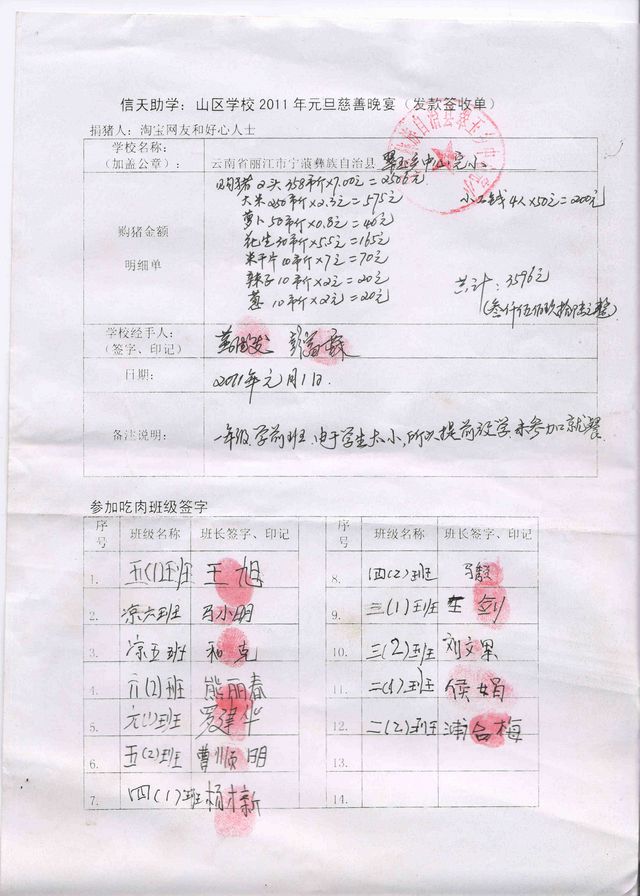 信天助学：山区学校2011年元旦慈善晚宴（发款签收单）
捐猪人：淘宝网友和好心人士
学校名称：
（加盖公章）：
云南省丽江市宁蒗彝族自治县 翠玉乡中心完小
购猪金额
明细单
购猪 2头 358市斤×7.00元＝2506元
大米250市斤×2.3元＝575元
小工钱4人×50元＝200元
萝卜50市斤×0.8元＝40元
花生30市斤×5.5元＝165元
米干片10市斤×7元＝70元
辣子10市斤×2元＝20元
葱 10市斤×2元＝20元
共计：3596元
(叁仟伍佰玖拾陆元整)
学校经手人：
（签字、印记）
日期：
2011年元月1日
备注说明：
一年级、学前班、由于学生太小，所以提前放学，未参加就餐
参加吃肉班级签字
序号 班级名称 班长签字、印记
1. 五(1)班 王旭
2. 凉六班 马小明
3. 凉五班 和克
4. 六(2)班 熊丽春
5. 六(1)班 罗建华
6. 五(2)班 曹顺明
7. 四(1)班 杨梓新
序号 班级名称 班长签字、印记
8. 四(2)班
9. 三(1)班 王剑
10. 三(2)班 刘文果
11. 二(1)班 侯娟
12. 二(2)班 浦合梅
13.
14.